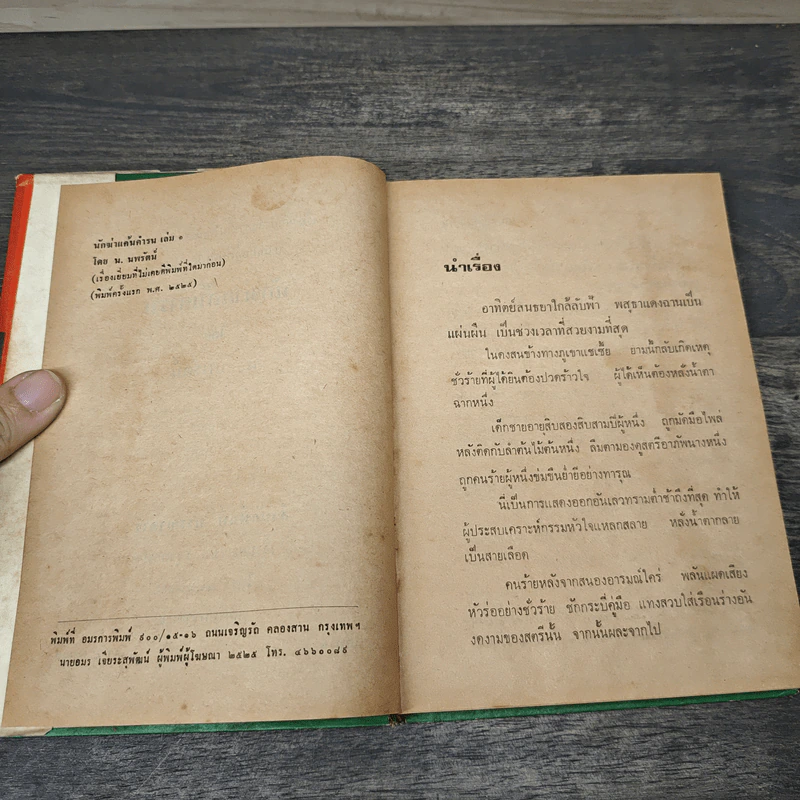 นักฆ่าแค้นคำรน เล่ม ๑
โดย น. นพรัตน์
(เรื่องเยี่ยมที่ไม่เคยตีพิมพ์ที่ใดมาก่อน)
(พิมพ์ครั้งแรก พ.ศ. ๒๕๒๕)
พิมพ์ที่ อมรการพิมพ์ ๙๐๐/๑๕-๑๖ ถนนเจริญรัถ คลองสาน กรุงเทพฯ
นายอมร เจียระสุพัฒน์ ผู้พิมพ์ผู้โฆษณา ๒๕๒๕ โทร. ๔๖๖๐๐๘๙
นำเรื่อง
อาทิตย์สนธยาใกล้ลับฟ้า พสุธาแดงฉานเป็น
แผ่นผืน เป็นช่วงเวลาที่สวยงามที่สุด
ในดงสนข้างทางภูเขาแชเซี้ย ยามนี้กลับเกิดเหตุ
ชั่วร้ายที่ผู้ได้ยินต้องปวดร้าวใจ ผู้ได้เห็นต้องหลั่งน้ำตา
ฉากหนึ่ง
เด็กชายอายุสิบสองสิบสามปีผู้หนึ่ง ถูกมัดมือไพล่
หลังติดกับลำต้นไม้ต้นหนึ่ง ลืมตามองดูสตรีอาภัพนางหนึ่ง
ถูกคนร้ายผู้หนึ่งข่มขืนย่ำยีอย่างทารุณ
นี่เป็นการแสดงออกอันเลวทรามต่ำช้าถึงที่สุด ทำให้
ผู้ประสบเคราะห์กรรมหัวใจแหลกสลาย หลั่งน้ำตากลาย
เป็นสายเลือด
คนร้ายหลังจากสนองอารมณ์ใคร่ พลันแผดเสียง
หัวร่ออย่างชั่วร้าย ชักกระบี่คู่มือ แทงสวบใส่เรือนร่างอัน
งดงามของสตรีนั้น จากนั้นผละจากไป